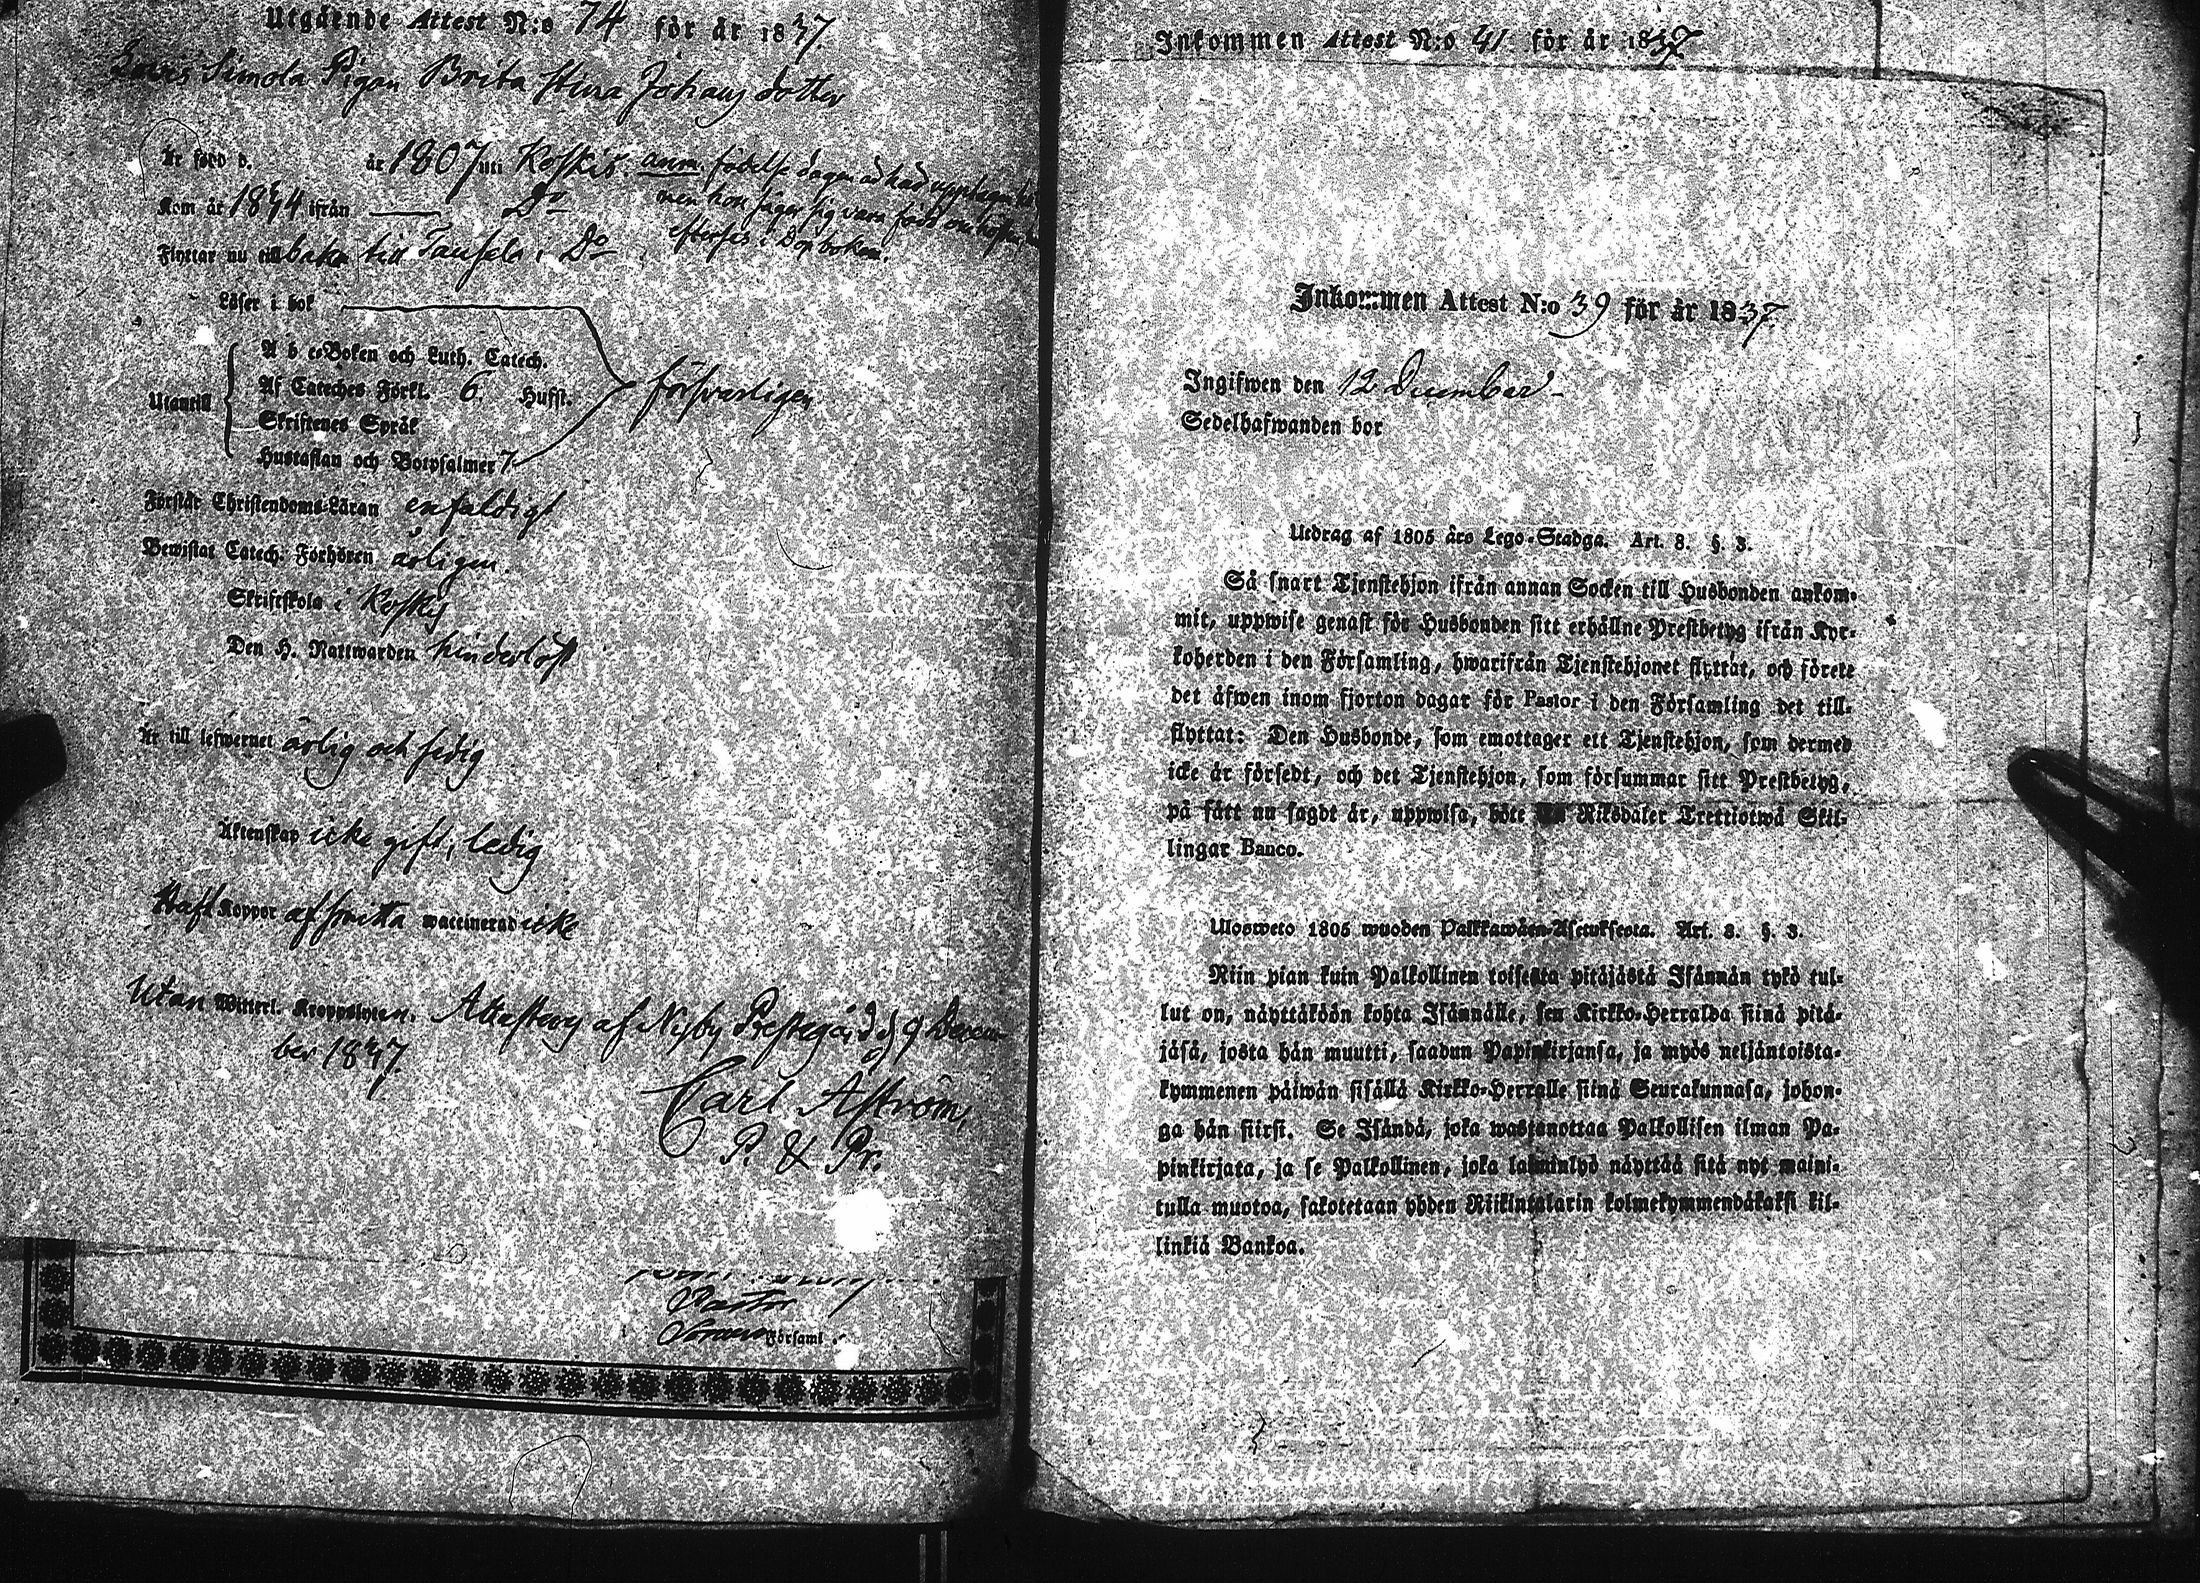 Utgående Attest N:o 74 för år 1837.
Simola Pigan Brita Stina Johans dotter
Är född d. år 1807 uti Koskis. anm. födelse dagen
Kom år 1834 ifrån — Do — men hon säger sig vara född om hösten
Flyttar nu till baka till i Do efterses i Dopboken.
Läser i bok
Utantill
A b c-Boken och Luth. Catech.
Af Cateches Förkl. 6. Hufst. försvarligen
Skriftenes Språk
Hustaflan och Botpsalmer 7
Förstår Christendoms-Läran enfaldigt
Bewistat Catech. Förhören årligen.
Skriftskola i Koskis
Den H. Nattwarden hinderlöst
Är till lefwernet ärlig och sedig
Äktenskap icke gift, ledig
Haft Koppor af smitta waccinerad icke
Utan Witterl. Kroppslyten. Attesteras af Nyby Prestegård d. 9 Decem-
ber 1837.
Carl Aström,
P. & Pr.
Pastor
i Församl.
Inkommen Attest N:o 41 för år 1837
Inkommen Attest N:o 39 för år 1837.
Ingifwen den 12 December
Sedelhafwanden bor
Utdrag af 1805 års Lego-Stadga. Art. 8. §. 3.
Så snart Tjenstehjon ifrån annan Socken till Husbonden ankom-
mit, uppwise genast för Husbonden sitt erhållne Prestbetyg ifrån Kyr-
koherden i den Församling, hwarifrån Tjenstehjonet flyttat, och förete
det äfwen inom fjorton dagar för Pastor i den Församling det till-
flyttat: Den Husbonde, som emottager ett Tjenstehjon, som dermed
icke är försedt, och det Tjenstehjon, som försummar sitt Prestbetyg,
på sätt nu sagdt är, uppwisa, böte Riksdaler Trettiotwå Skil-
lingar Banco.
Ulosweto 1805 wuoden Palkkawäen-Asetuksesta. Art. 8. §. 3.
Niin pian kuin Palkollinen toisesta pitäjästä Isännän tykö tul-
lut on, näyttäköön kohta Isännälle, sen Kirkko-Herralda siinä pitä-
jäsä, josta hän muutti, saadun Papinkirjansa, ja myös neljäntoista-
kymmenen päiwän sisällä Kirkko-Herralle siinä Seurakunnasa, johon-
ga hän siirsi. Se Isändä, joka wastanottaa Palkollisen ilman Pa-
pinkirjata, ja se Palkollinen, joka laiminlyö näyttää sitä nyt maini-
tulla muotoa, sakotetaan yhden Riikintalarin kolmekymmendäkaksi kil-
linkiä Bankoa.